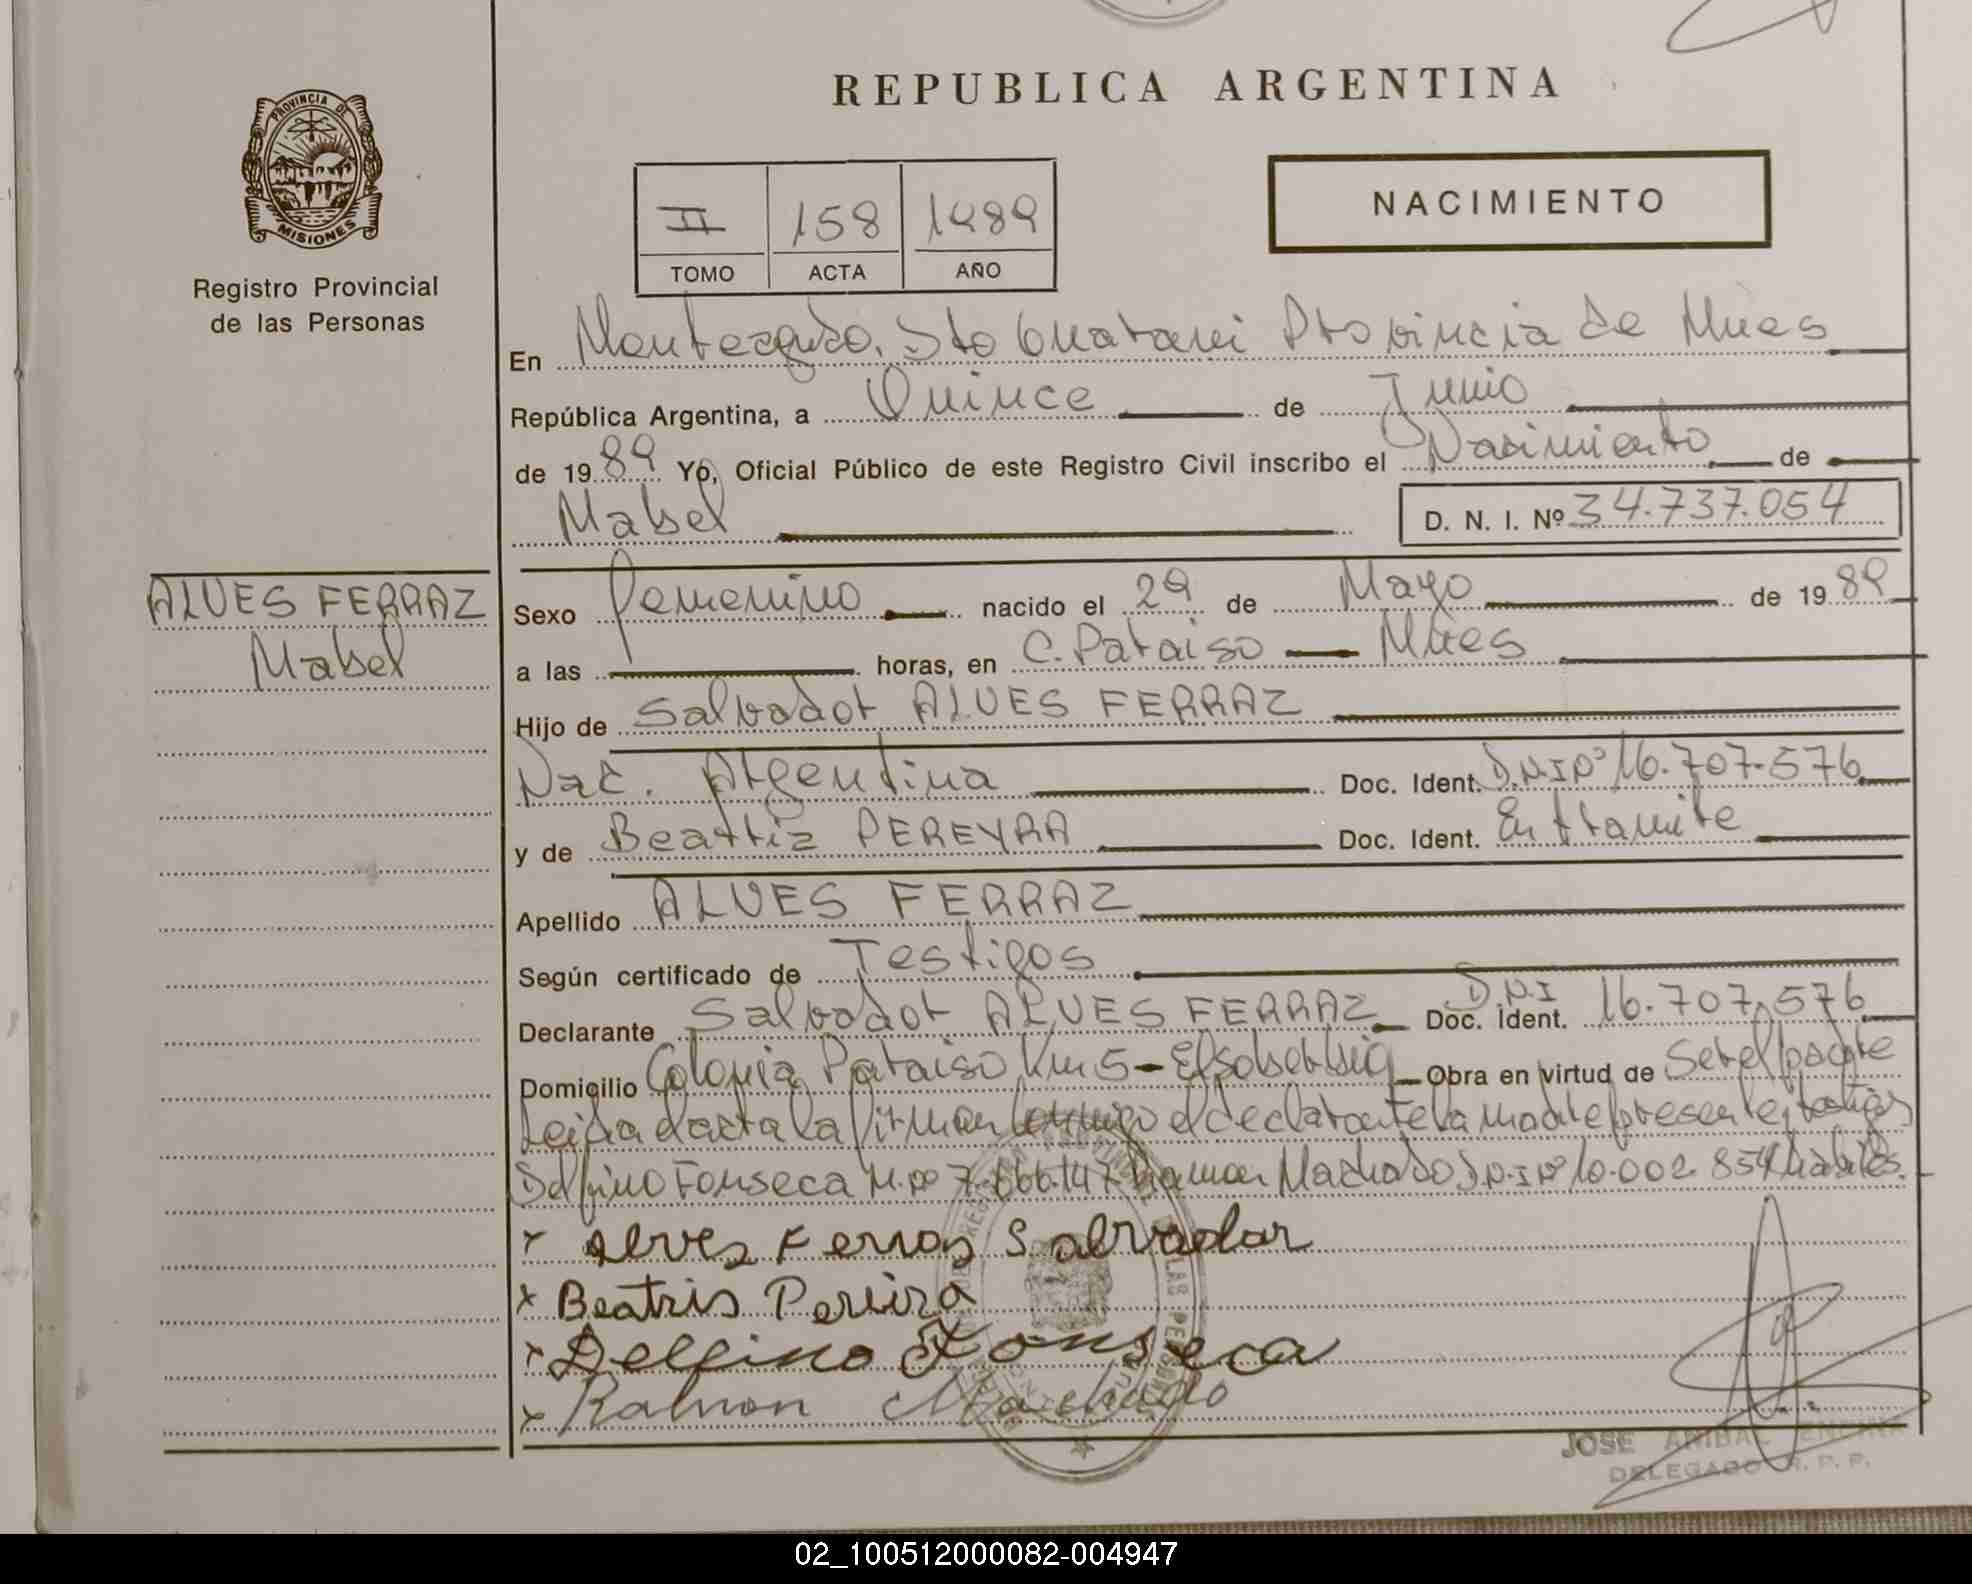 REPUBLICA ARGENTINA
PROVINCIA DE
MISIONES
Registro Provincial
de las Personas
II 158 1989
TOMO ACTA AÑO
NACIMIENTO
En Monteagudo, Sto Guarani Provincia de Mnes
República Argentina, a Quince de Junio
de 19 89 Yo, Oficial Público de este Registro Civil inscribo el Nacimiento de
Mabel D. N. I. Nº 34.737.054
ALVES FERRAZ
Mabel
Sexo femenino nacido el 29 de Mayo de 19 89
a las horas, en C. Paraiso Mnes
Hijo de Salvador ALVES FERRAZ
Nac. Argentina Doc. Ident. D.N.I Nº 16.707.576
y de Beatriz PEREYRA Doc. Ident. En tramite
Apellido ALVES FERRAZ
Según certificado de Testigos
Declarante Salvador ALVES FERRAZ Doc. Ident. D.N.I 16.707.576
Domicilio Colonia Paraiso Km 5 - El soberbio Obra en virtud de Ser el padre
Leida el acta la firman conmigo el declarante la madre presente y testigos
Delfino Fonseca M. Nº 7.866.147 Ramon Machado D.N.I Nº 10.002.854 habiles.
x Alves Ferras Salvador
x Beatris Pereira
x Delfino Fonseca
x Ramon Machado
JOSE ANIBAL ENCINA
DELEGADO R. P. P.
02_100512000082-004947